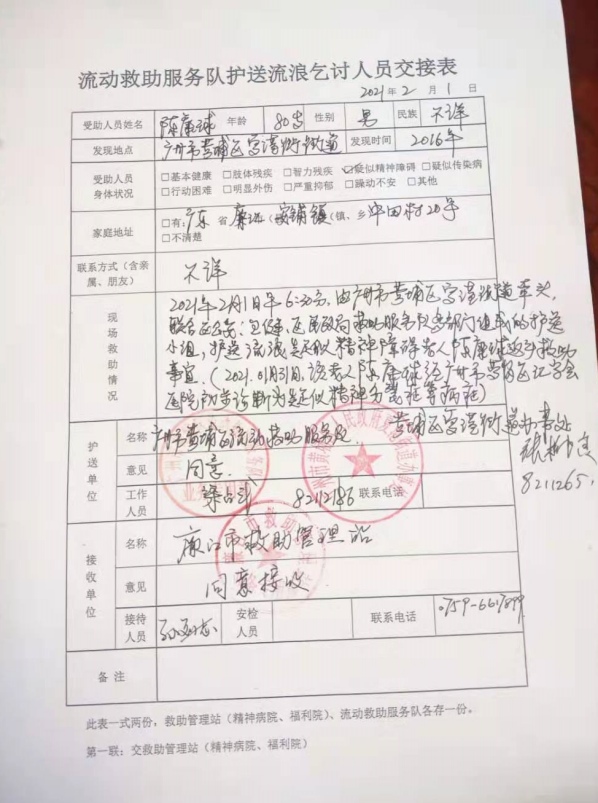 流动救助服务队护送流浪乞讨人员交接表
2021年2月1日
受助人员姓名 陈康球 年龄 80岁 性别 男 民族 不详
发现地点 广州市黄埔区 街道 发现时间 2016年
受助人员身体状况 □基本健康 □肢体残疾 □智力残疾 ☑疑似精神障碍 □疑似传染病
□行动困难 □明显外伤 □严重抑郁 □躁动不安 □其他
家庭地址 □有:广东 省 廉江 (安铺镇(镇、乡 田村20号
□不清楚
联系方式(含亲属、朋友) 不详
现场救助情况
2021年2月1日早6:30左右,由广州市黄埔区 街道牵头,
联合区公安、卫健、区民政局救助服务队等部门组成的护送
小组,护送流浪疑似精神障碍老人陈康球返乡救助
事宜。(2021.01月31日,该老人陈康球经广州市黄埔区红十字会
医院初步诊断为疑似精神 等病症)
护送单位 名称 广州市黄埔区流动救助服务队 黄埔区 街道办事处
意见 同意.
工作人员 82112186 联系电话 8211265
接收单位 名称 廉江市救助管理站
意见 同意接收
接待人员 安检人员 联系电话 0759-6617899
备注
此表一式两份,救助管理站(精神病院、福利院)、流动救助服务队各存一份。
第一联:交救助管理站(精神病院、福利院)